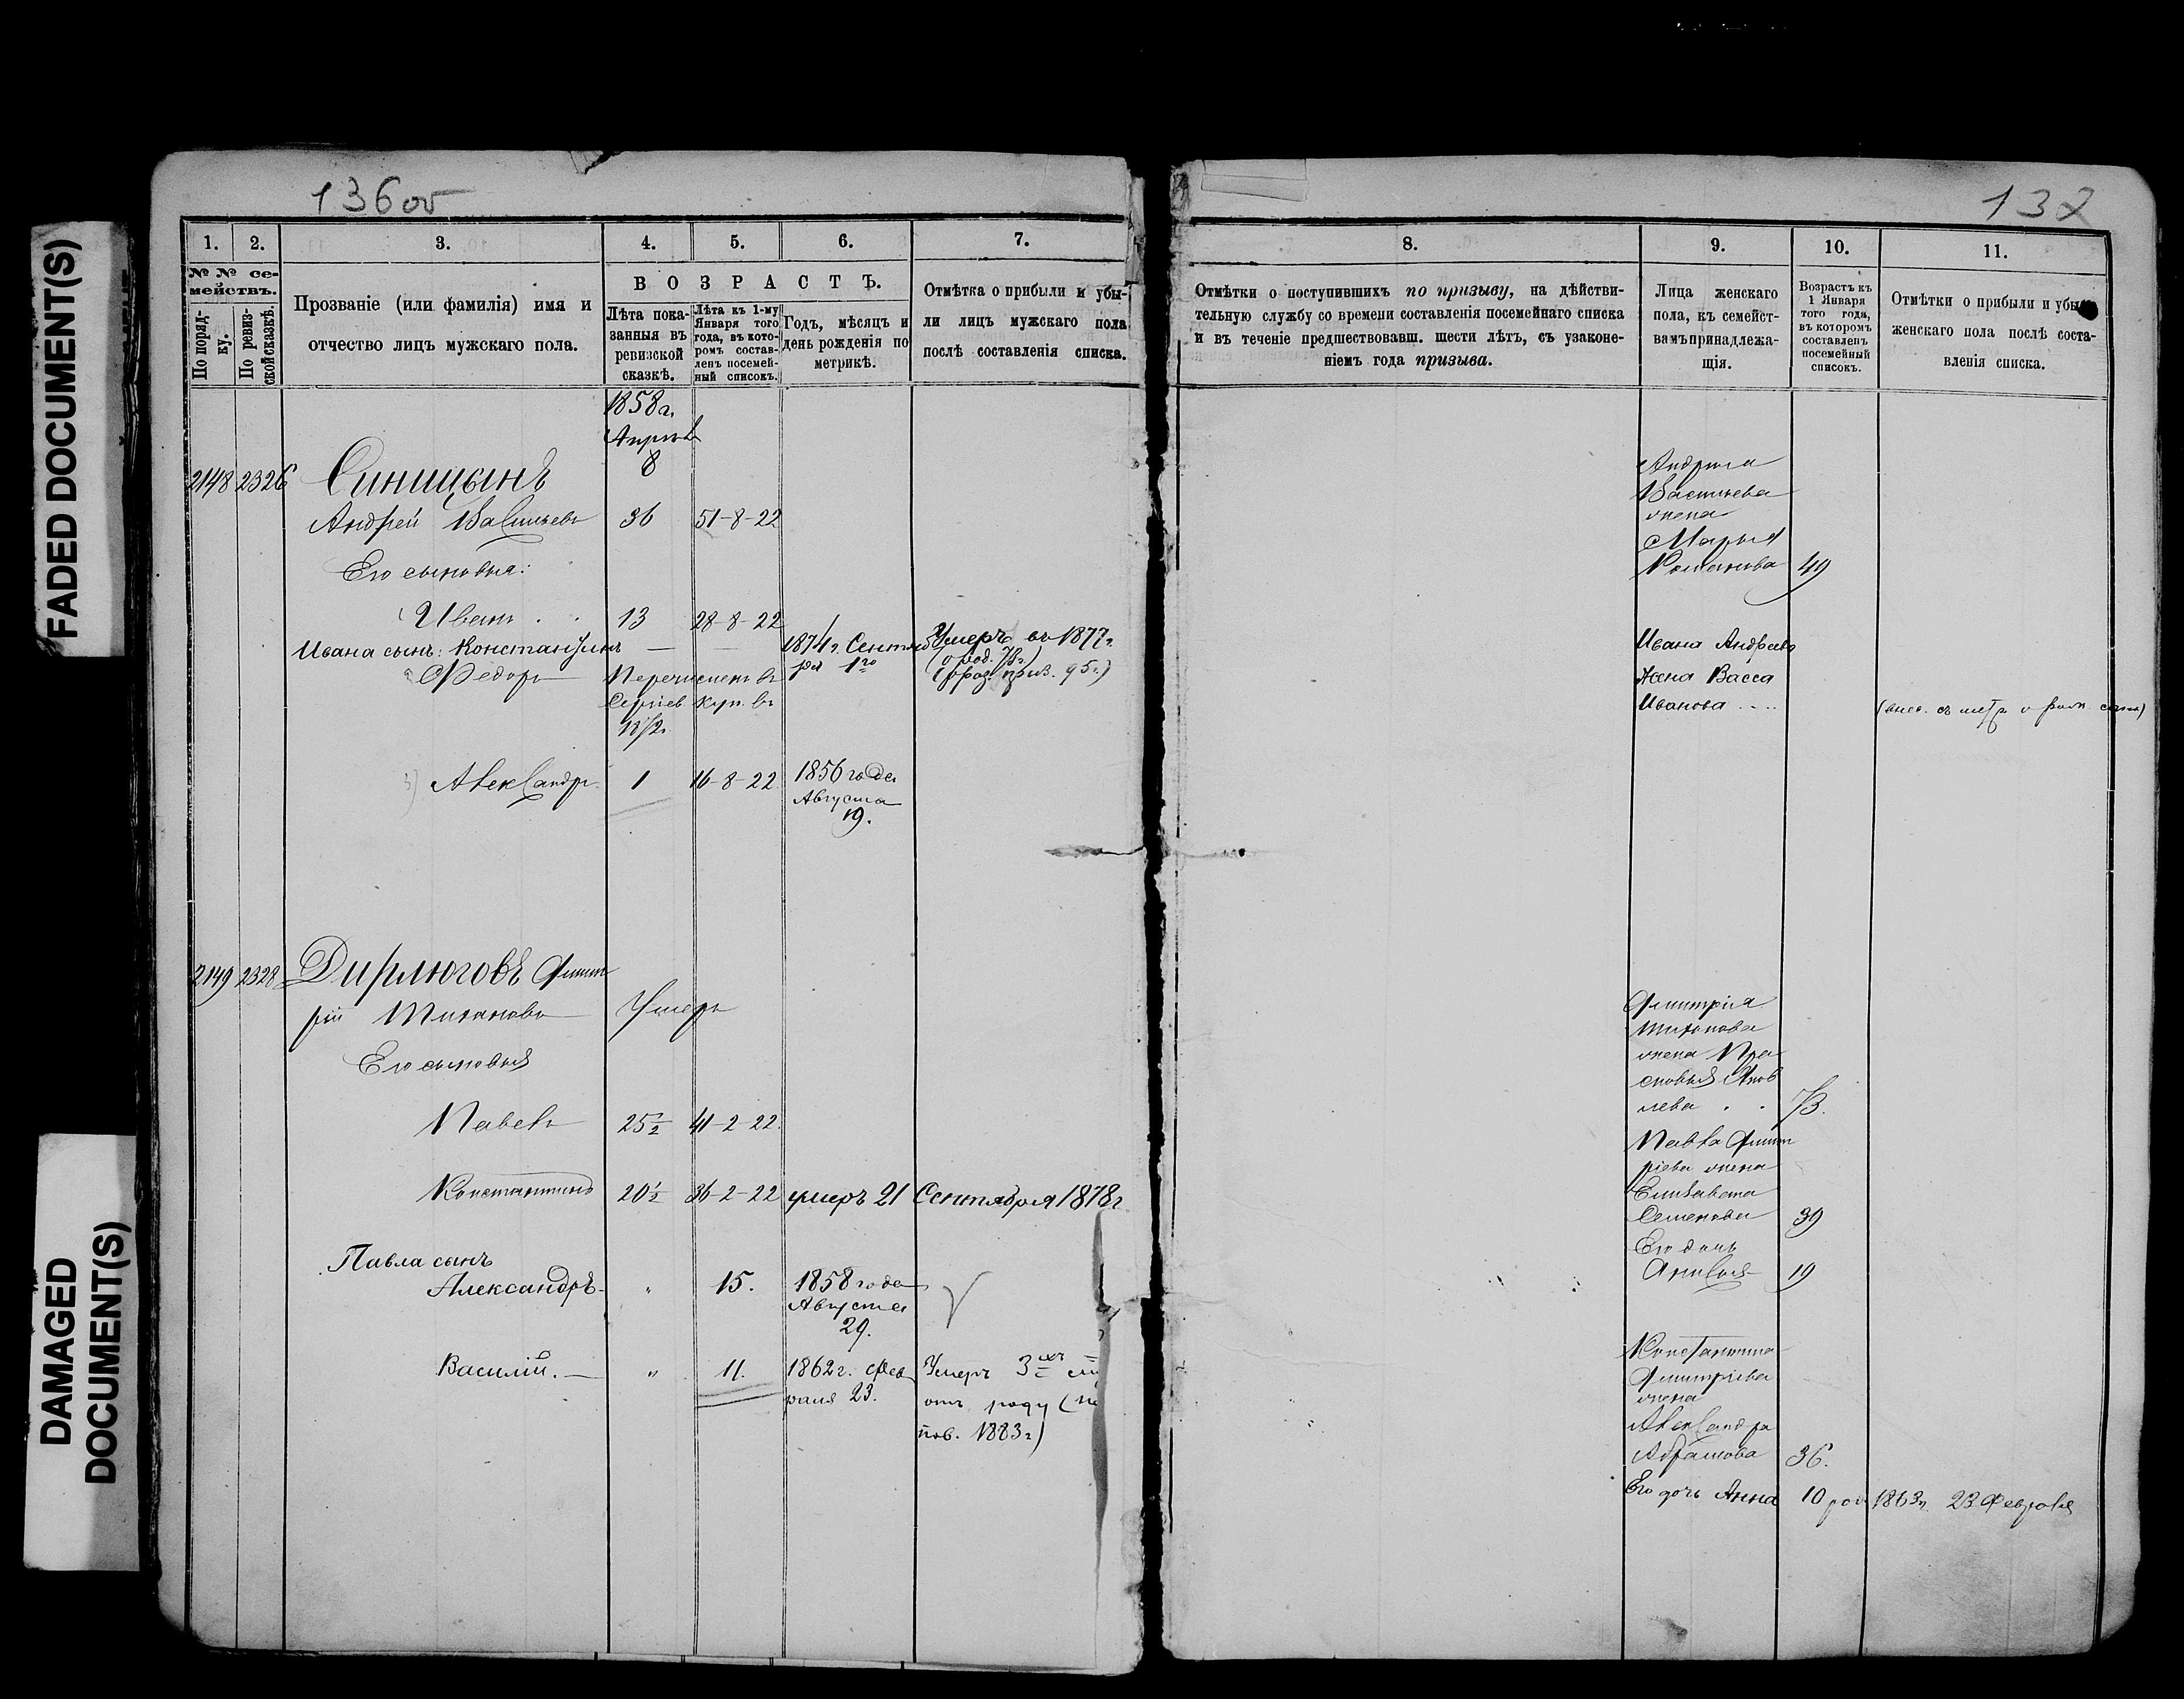 FADED DOCUMENT(S)
DAMAGED
DOCUMENT(S)
136 об
1.
2.
3.
4.
5.
6.
7.
№ № се-
мействъ.
По поряд-
ку.
По ревиз-
ской сказкѣ.
Прозваніе (или фамилія) имя и
отчество лицъ мужскаго пола.
ВОЗРАСТЪ.
Лѣта пока-
занныя въ
ревизской
сказкѣ.
Лѣта къ 1-му
Января того
года, въ кото-
ромъ состав-
ленъ посемей-
ный списокъ.
Годъ, мѣсяцъ и
день рожденія по
метрикѣ.
Отмѣтка о прибыли и убы-
ли лицъ мужскаго пола
послѣ составленія списка.
1858 г.
Апрѣля
8
2148 2326 Синицынъ
Андрей Васильевъ 36 51-8-22
Его сыновья:
Иванъ . . 13 28-8-22
Ивана сынъ: Константинъ — — 1874 г. Сентяб
ря 1го
Умеръ въ 1877 г.
Федоръ Перечисленъ въ
Сергіев. куп. въ
Александръ 1 16-8-22 1856 года
Августа
19.
2149 2328 Дирлюговъ Дмит
рій Тихоновъ Умеръ
Его сыновья
Павелъ 25½ 41-2-22
Константинъ 20½ 36-2-22 умеръ 21 Сентября 1878 г
Павла сынъ
Александръ „ 15. 1858 года
Августа
29.
Василій. — „ 11. 1862 г. Фев
раля 23.
Умеръ 3
отъ роду
пов. 1883 г)
132
8.
9.
10.
11.
Отмѣтки о поступившихъ по призыву, на дѣйстви-
тельную службу со времени составленія посемейнаго списка
и въ теченіе предшествовавш. шести лѣтъ, съ узаконе-
ніемъ года призыва.
Лица женскаго
пола, къ семейст-
вамъ принадлежа-
щія.
Возрастъ къ
1 Января
того года,
въ которомъ
составленъ
посемейный
списокъ.
Отмѣтки о прибыли и убы
женскаго пола послѣ соста-
вленія списка.
Андрея
Васильева
жена
Марья
Романова 49
Ивана Андреева
жена Васса
Иванова ....
Дмитрія
Тихонова
жена Пра
сковья Яков
лева . . 73.
Павла Дмит
ріева жена
Елизавета
Семенова 39
Его дочь
Анисья 19
Константина
Дмитріева
жена
Александра
Абрамова 36.
Его дочь Анна 10 род 1863 г. 23 Февраля